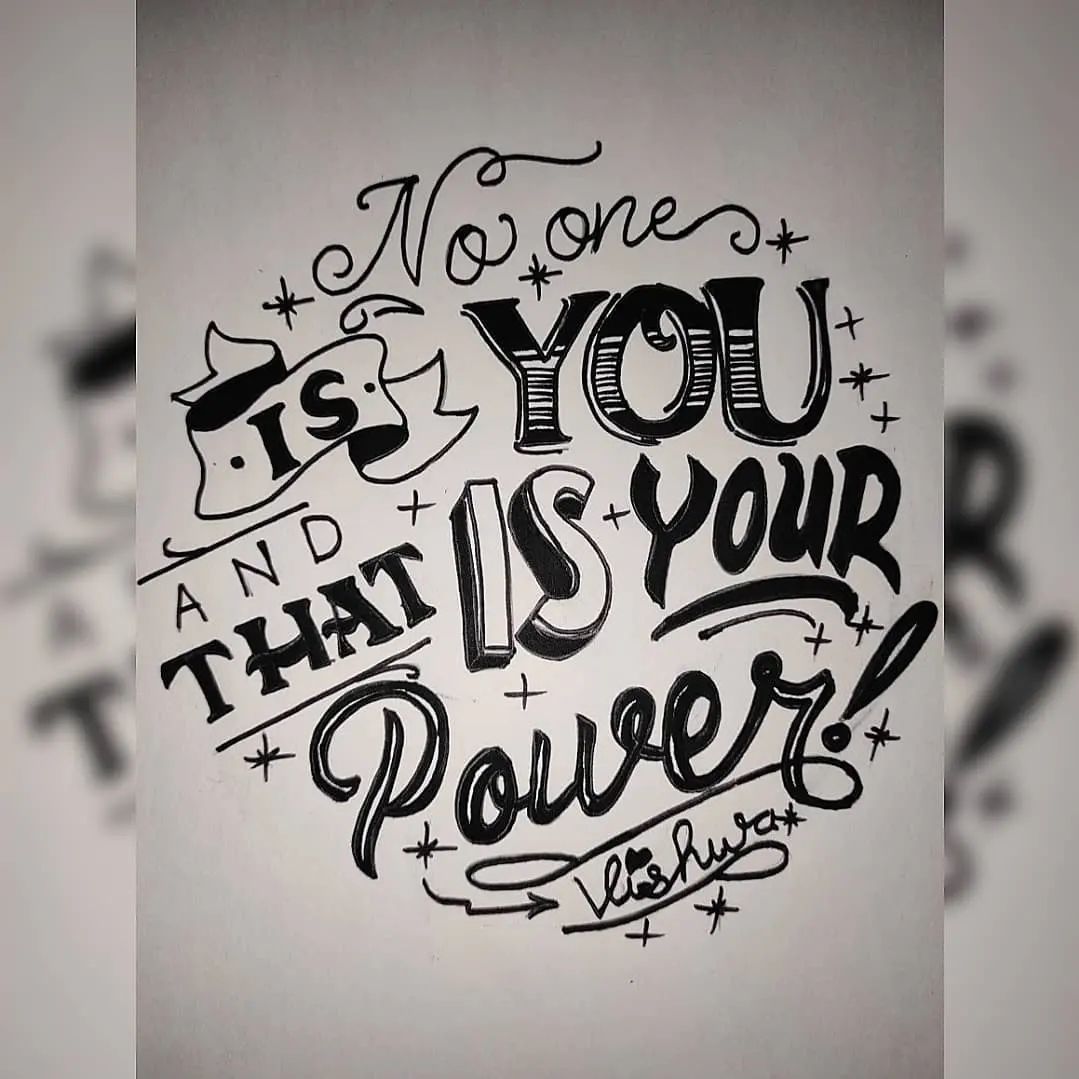 No one
IS YOU
AND
THAT IS YOUR
Power!
Vishwa